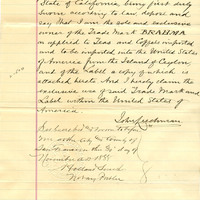 State of California, being first duly
sworn according to law, depose and
say that I am the sole and exclusive
owner of the Trade Mark BRAHMA
as applied to Teas and Coffees imported
and to be imported into the United States
of America from the Island of Ceylon,
and of the Label a copy of which is
attached hereto. And I hereby claim the
exclusive use of said Trade Mark and
Label within the United States of
America.
John
Subscribed & Sworn to before
me at the City & County of
San Francisco this day of
November A.D. 18
Holland Smith
Notary Public